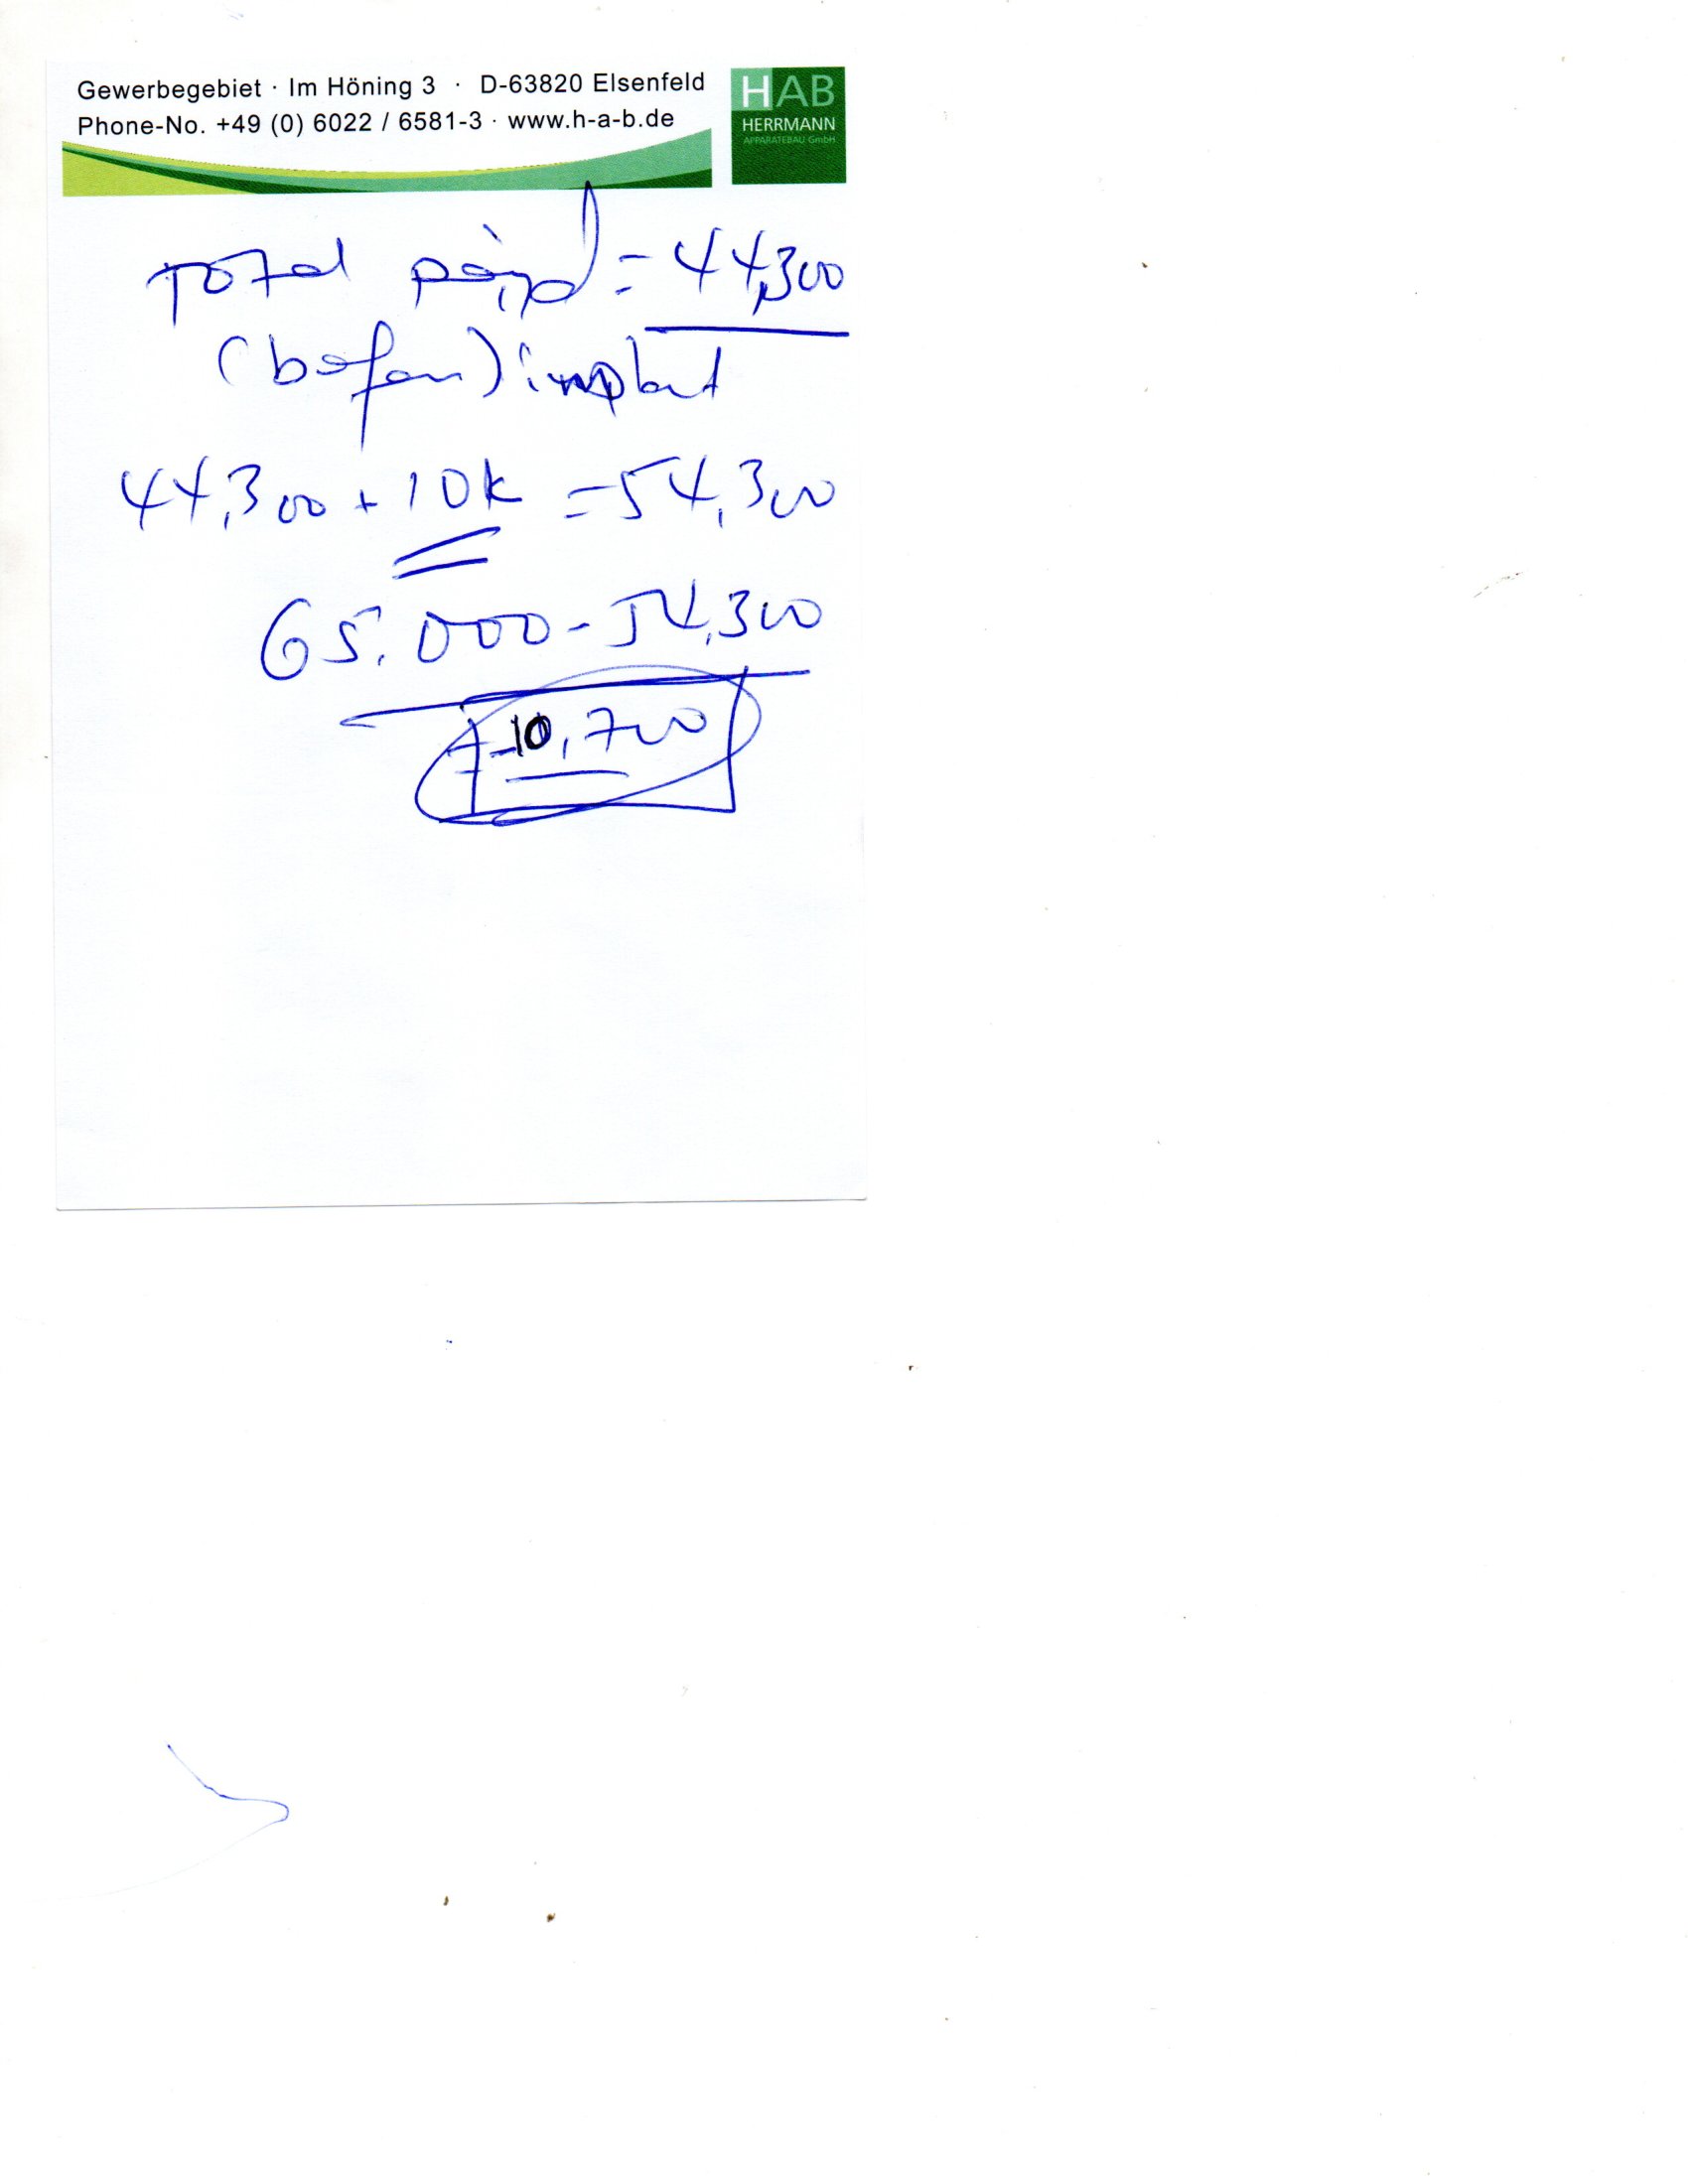 Gewerbegebiet · Im Höning 3 · D-63820 Elsenfeld
Phone-No. +49 (0) 6022 / 6581-3 · www.h-a-b.de
HAB
HERRMANN
APPARATEBAU GmbH
Total paid = 44,300
(before) implant
44,300 + 10k = 54,300
65.000 - 54,300
= 10,700